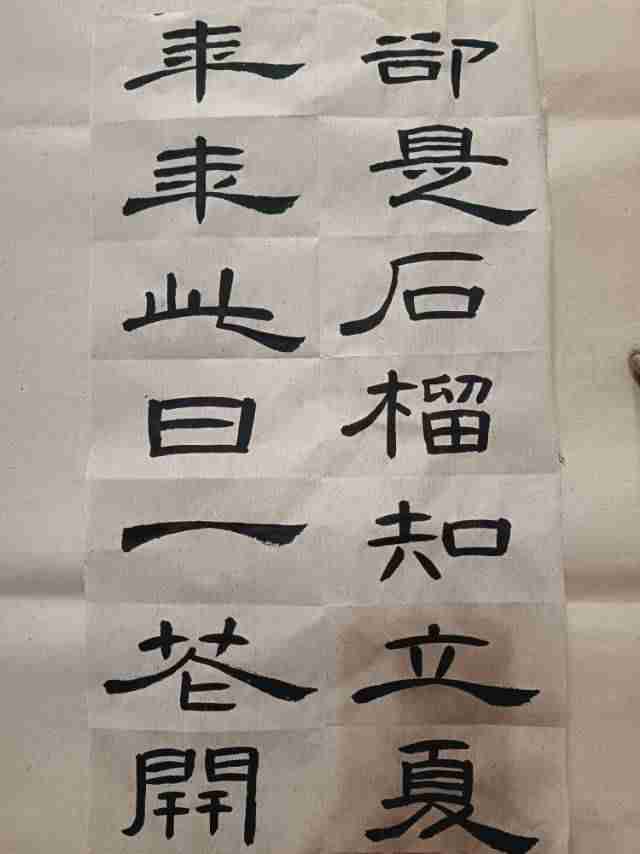 卻是石榴知立夏
年年此日一花開